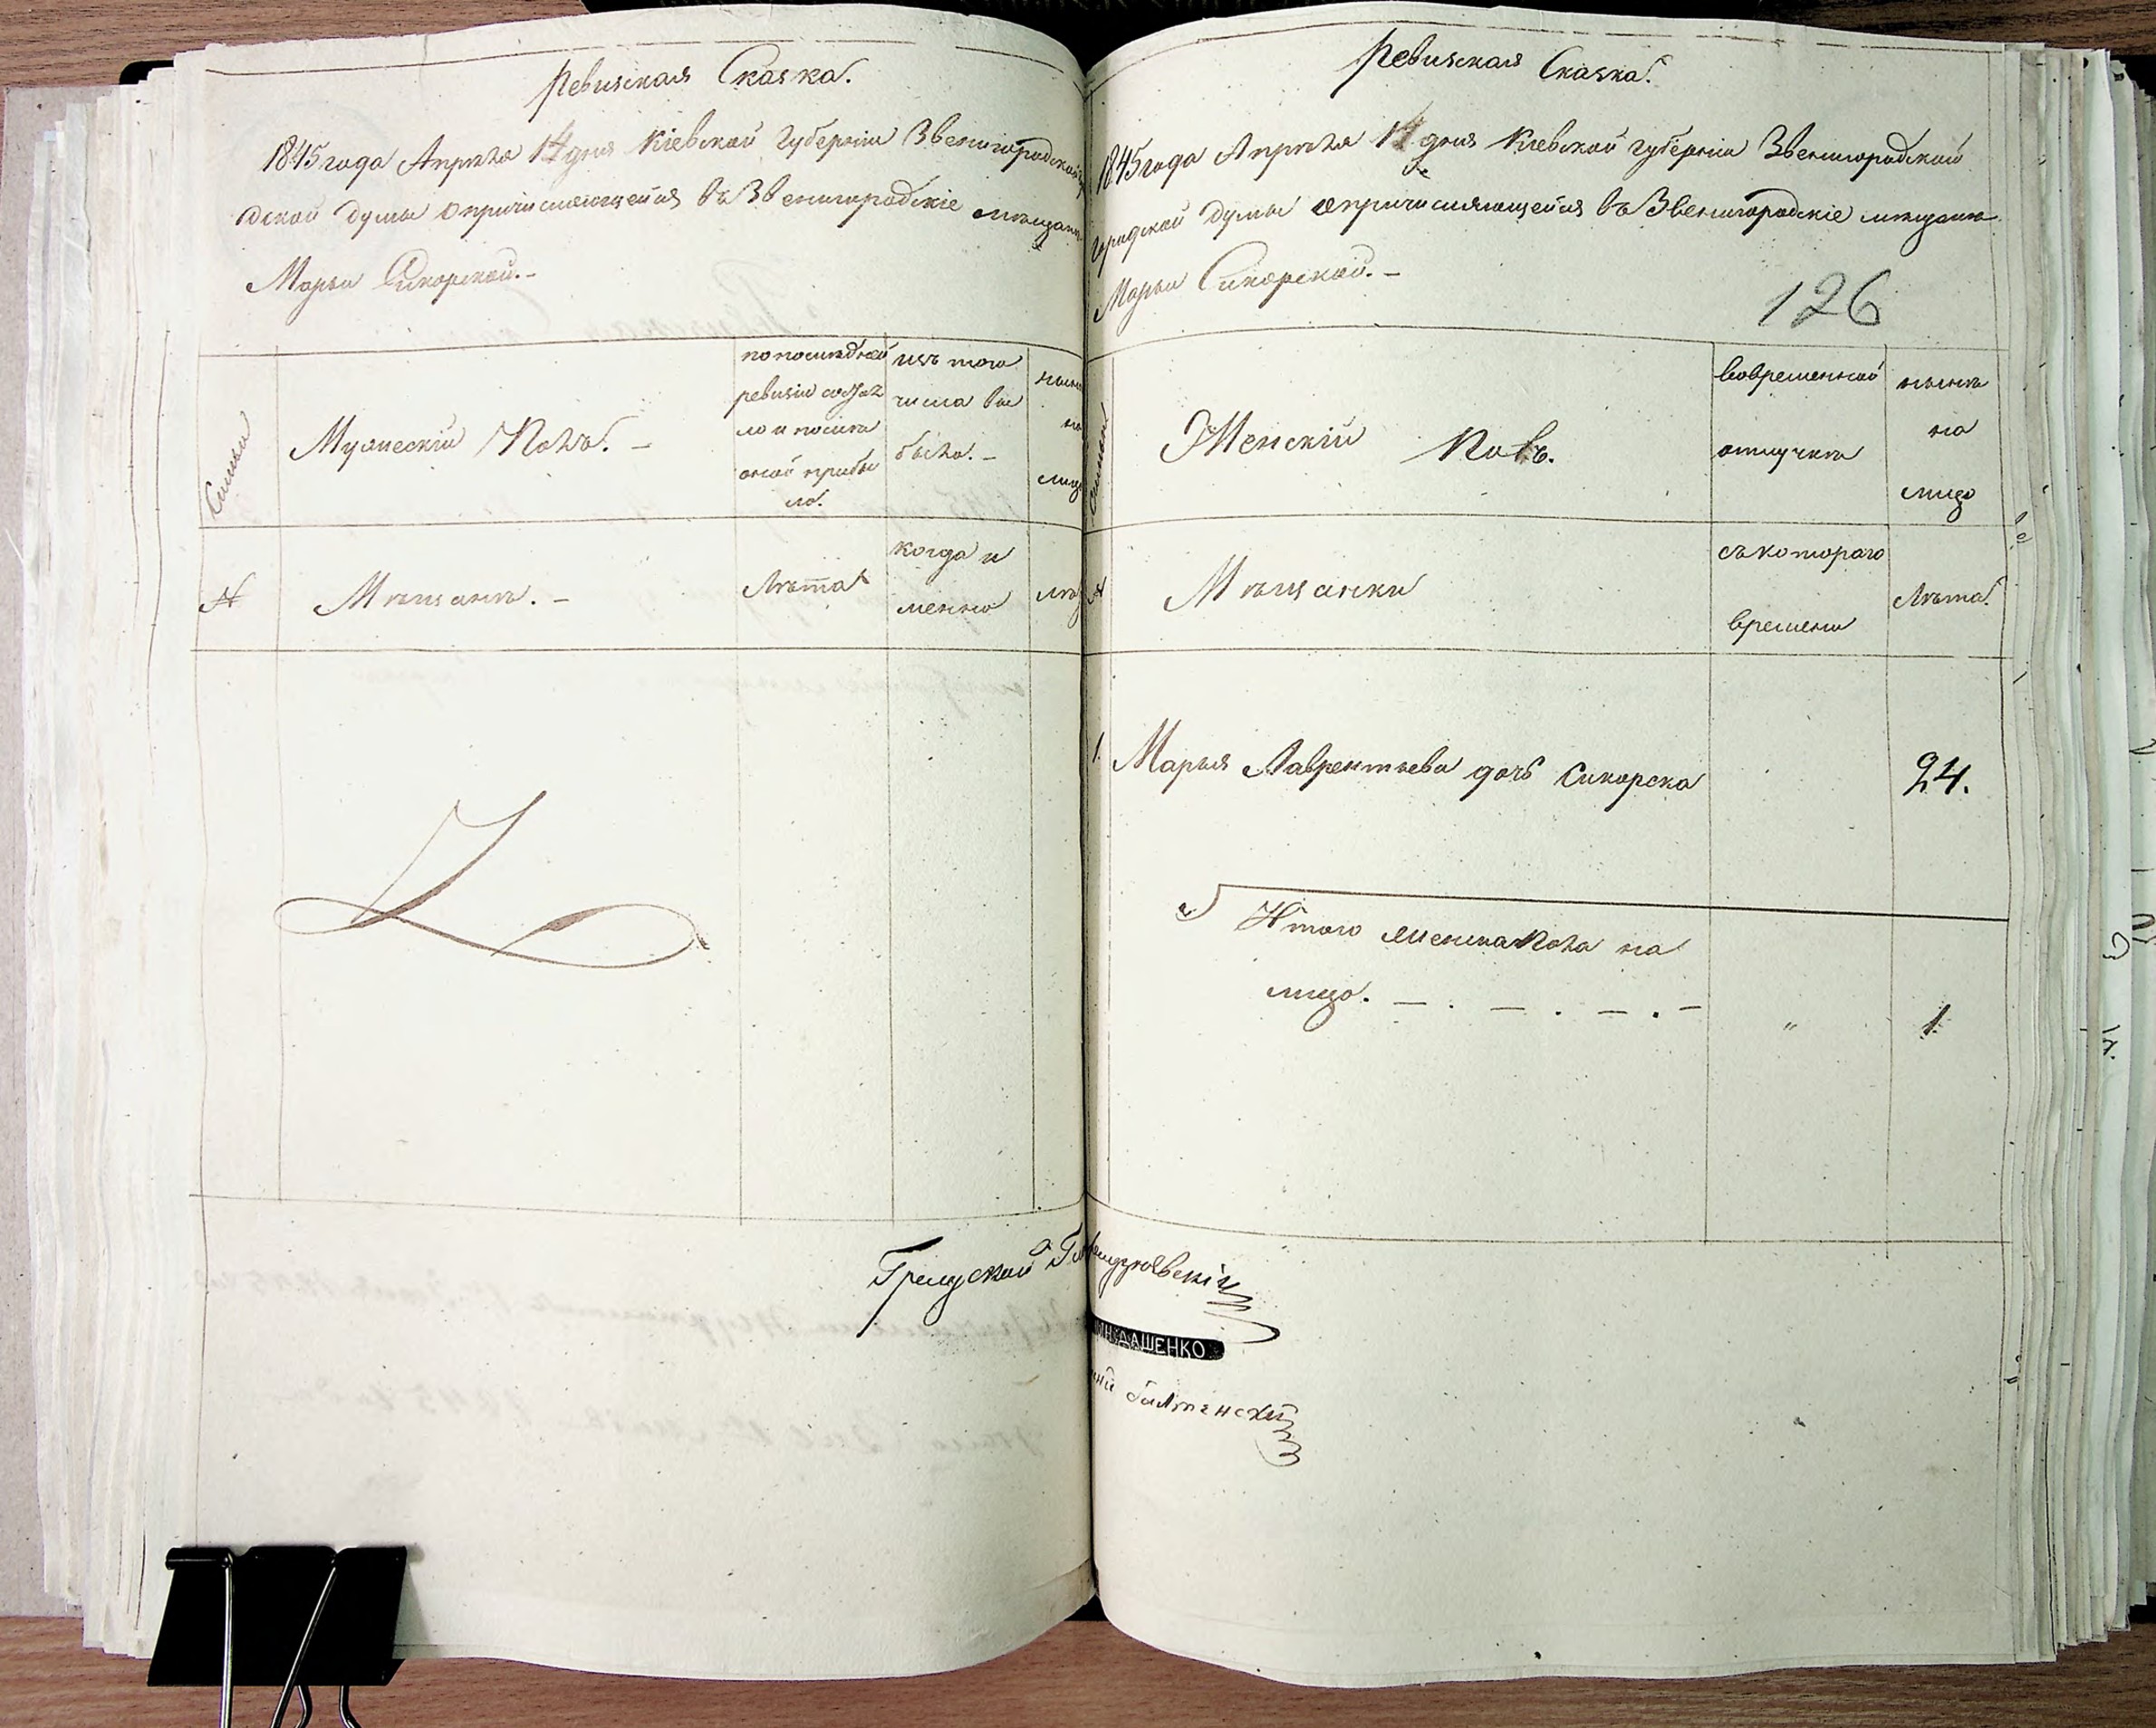 Ревизская Сказка.
1845 года Апреля 14 дня Кіевской Губерніи Звенигородской
дской думы о причисляющейся въ Звенигородскіе мещане
Марьи Сикорской. —
Семьи
Мужескій Полъ. —
по последней
ревизіи состоя
ло и после
оной прибы
ло.
изъ того
числа вы
было. —
ныне
на
лицо
№
Мещане. —
Лета
когда и
менно
лета
Градской
Ревизская Сказка.
1845 года Апреля 14 дня Кіевской губерніи Звенигородской
городской думы о причисляющейся въ Звенигородскіе мещане
Марьи Сикорской. —
126
Семьи
Женскій Полъ.
во временной
отлучке
ныне
на
лицо
№
Мещанки
съ котораго
времени
Лета.
1. Марья Лаврентьева дочь Сикорска 24.
Итого женска пола на
лицо. — . — . — . — " 1
ДАШЕНКО